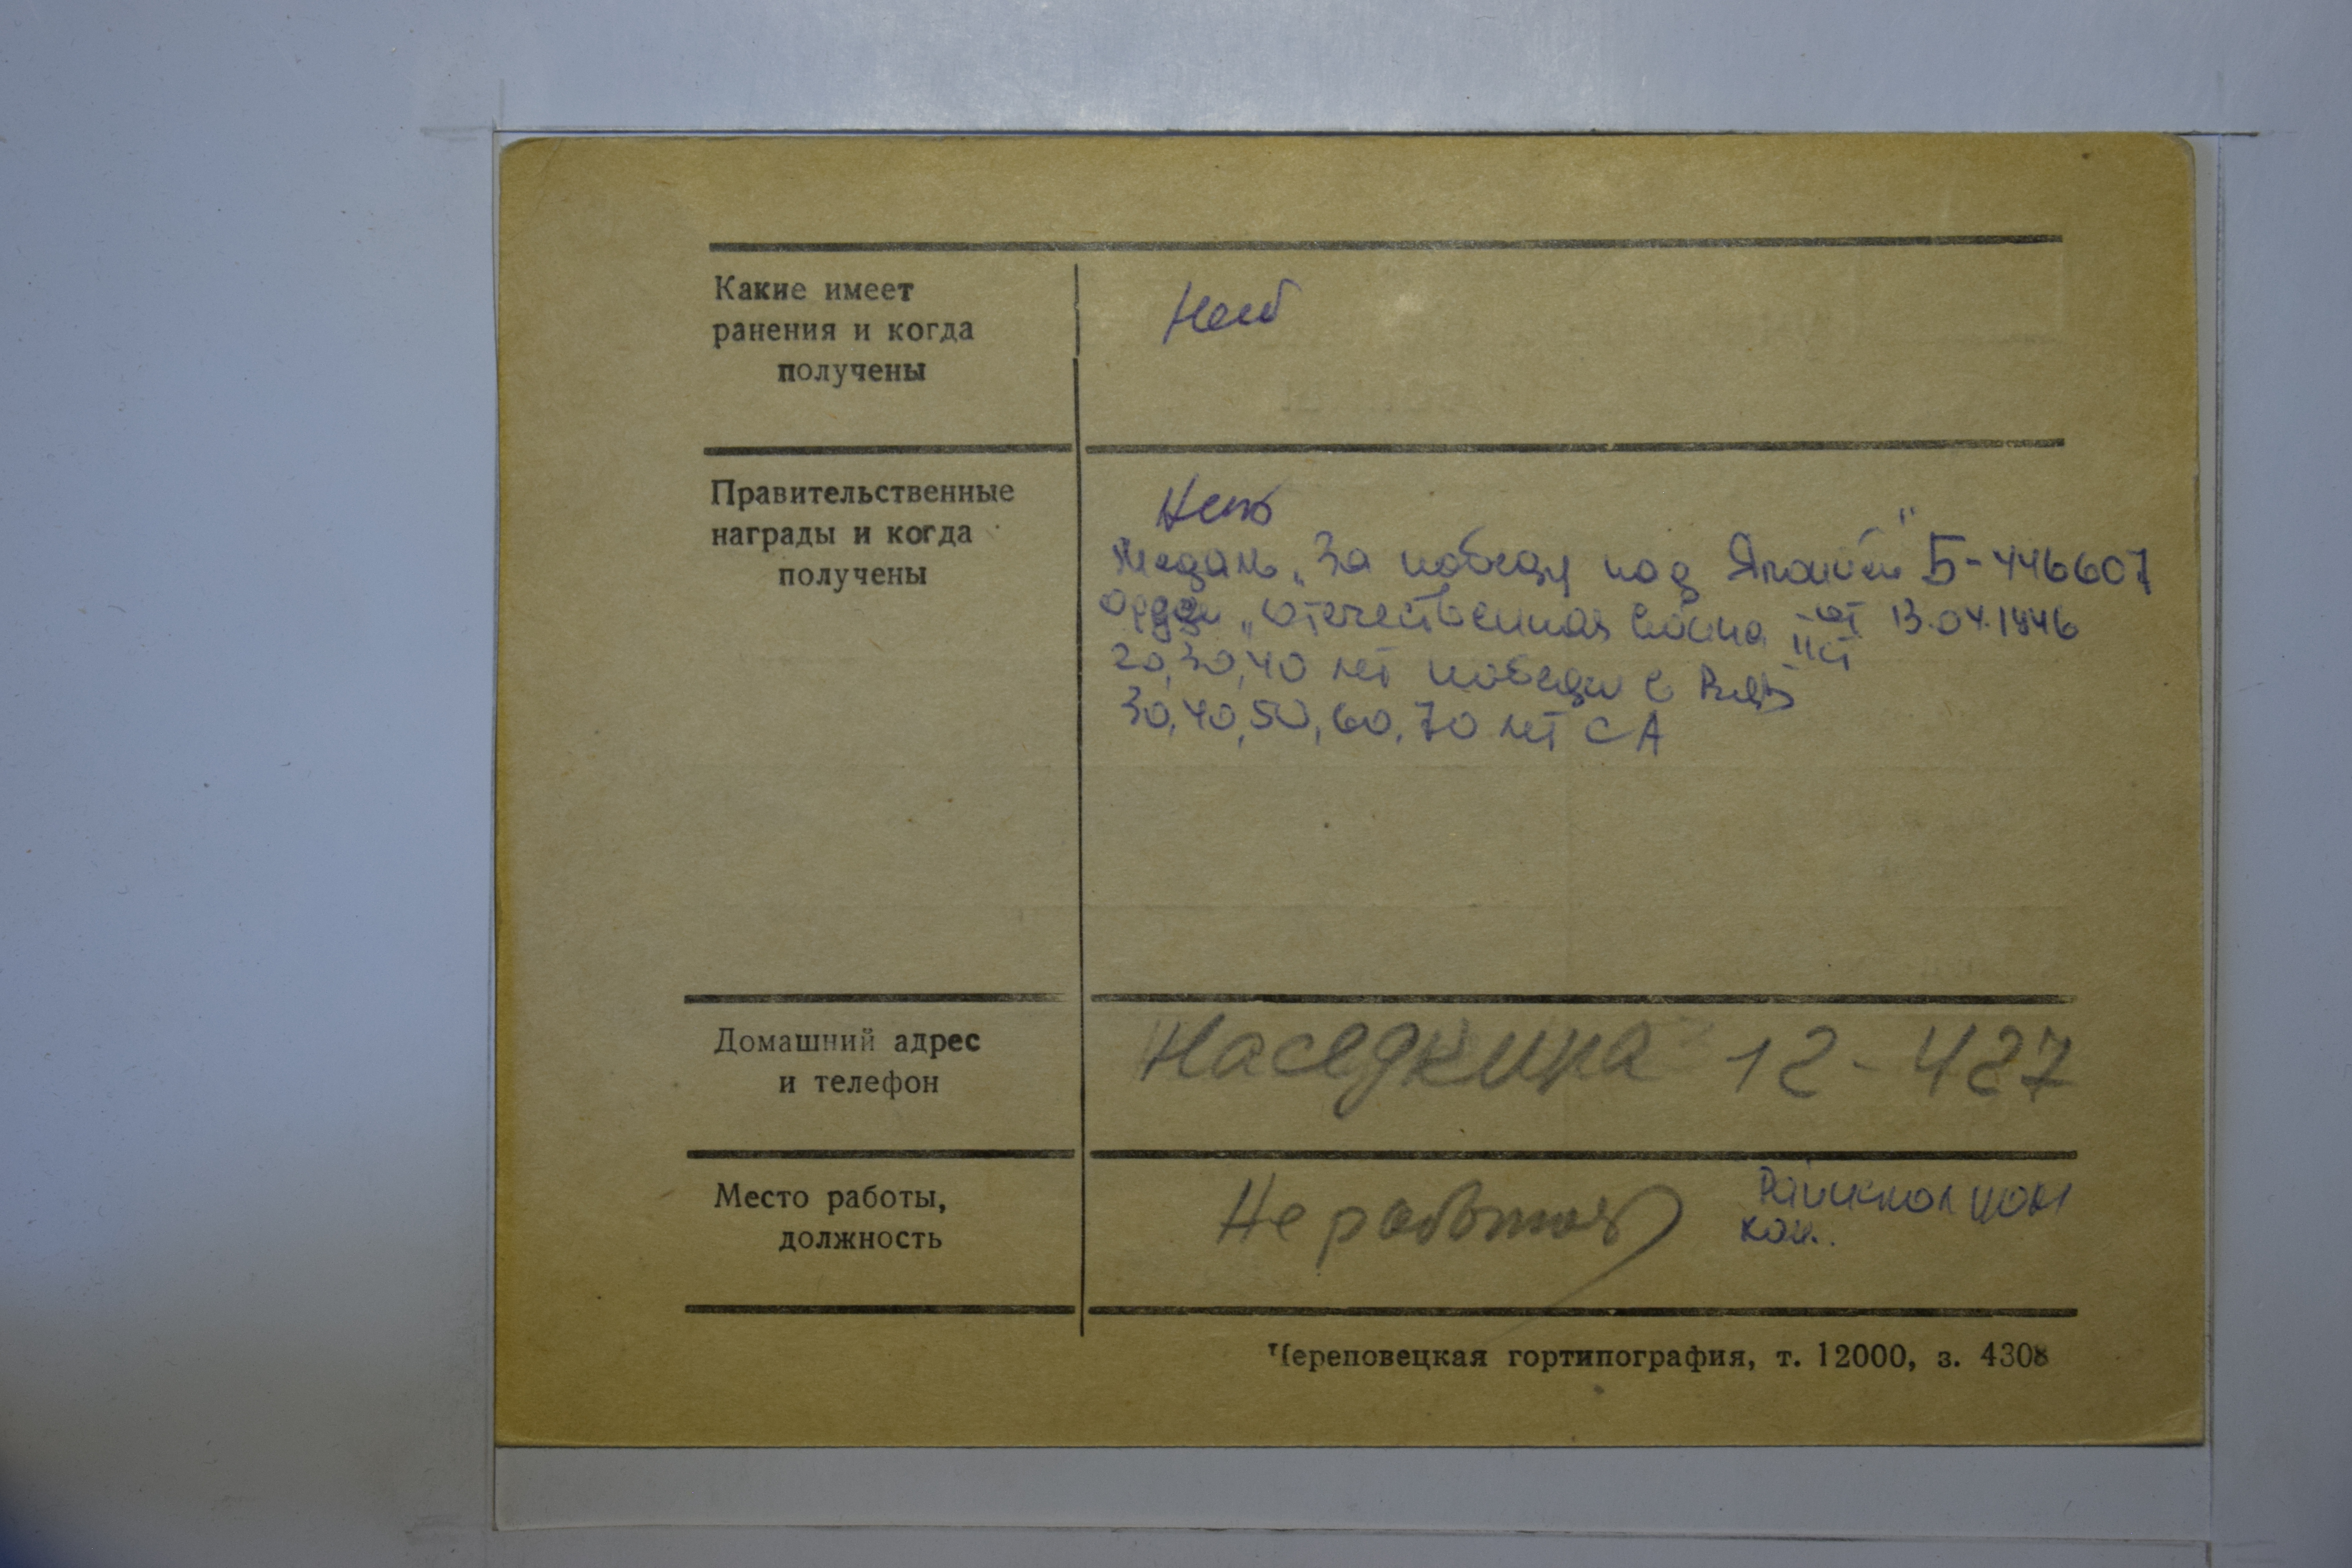 Какие имеет
ранения и когда
получены
Нет
Правительственные
награды и когда
получены
Нет
Медаль „За победу над Японией" Б-446607
орден „Отечественная война IIст от 13.04.1946
20, 30, 40 лет победы в ВОВ
30, 40, 50, 60, 70 лет СА
Домашний адрес
и телефон
Наседкина 12-427
Место работы,
должность
Не работая
ком.
Череповецкая гортипография, т. 12000, з. 4308